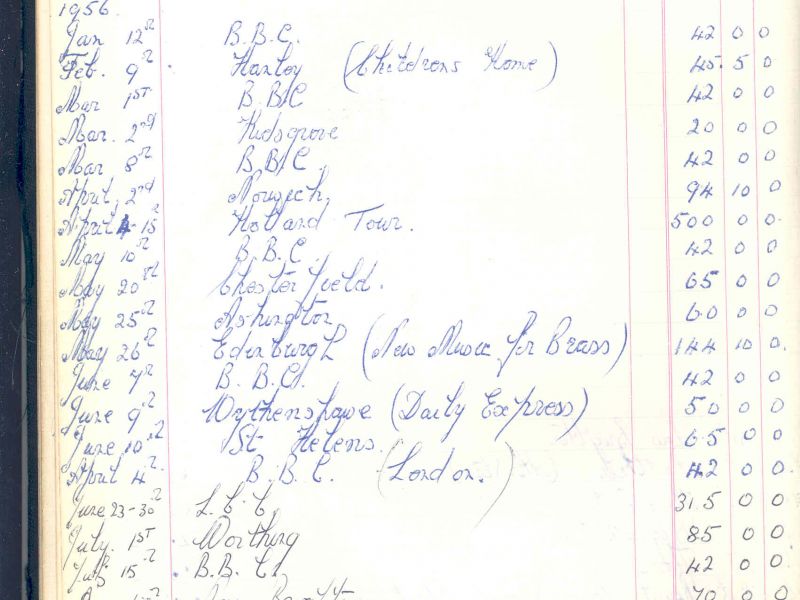 1956.
Jan 12th B.B.C. 42 0 0
Feb. 9th Hanley (Childrens Home) 45. 5 0
Mar 1st B.B.C 42 0 0
Mar. 2nd Kidsgrove 20 0 0
Mar 8th B.B.C. 42 0 0
April, 2nd Norwich, 94 10 0
April 4-15th Holland Tour. 500 0 0.
May 10th B.B.C. 42 0 0
May 20th Chesterfield. 65 0 0
May 25th Ashington 60 0 0
May 26th Edinburgh (New Music for Brass) 144 10 0.
June 7th B.B.C. 42 0 0
June 9th Wythenshawe (Daily Express) 50 0 0
June 10th St Helens. 65 0 0
April 4th B.B.C. (London.) 42 0 0.
June 23-30th L.C.C 315 0 0
July. 1st Worthing 85 0 0
July 15th B.B.C. 42 0 0
70 0 0